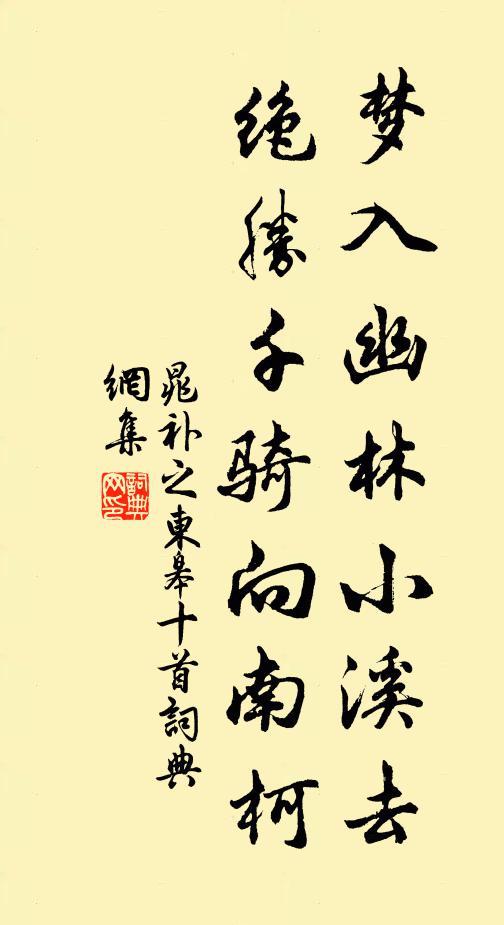 梦入幽林小溪去
绝胜千骑向南柯
晁补之東皋十首詞典
網集
詞典
网印